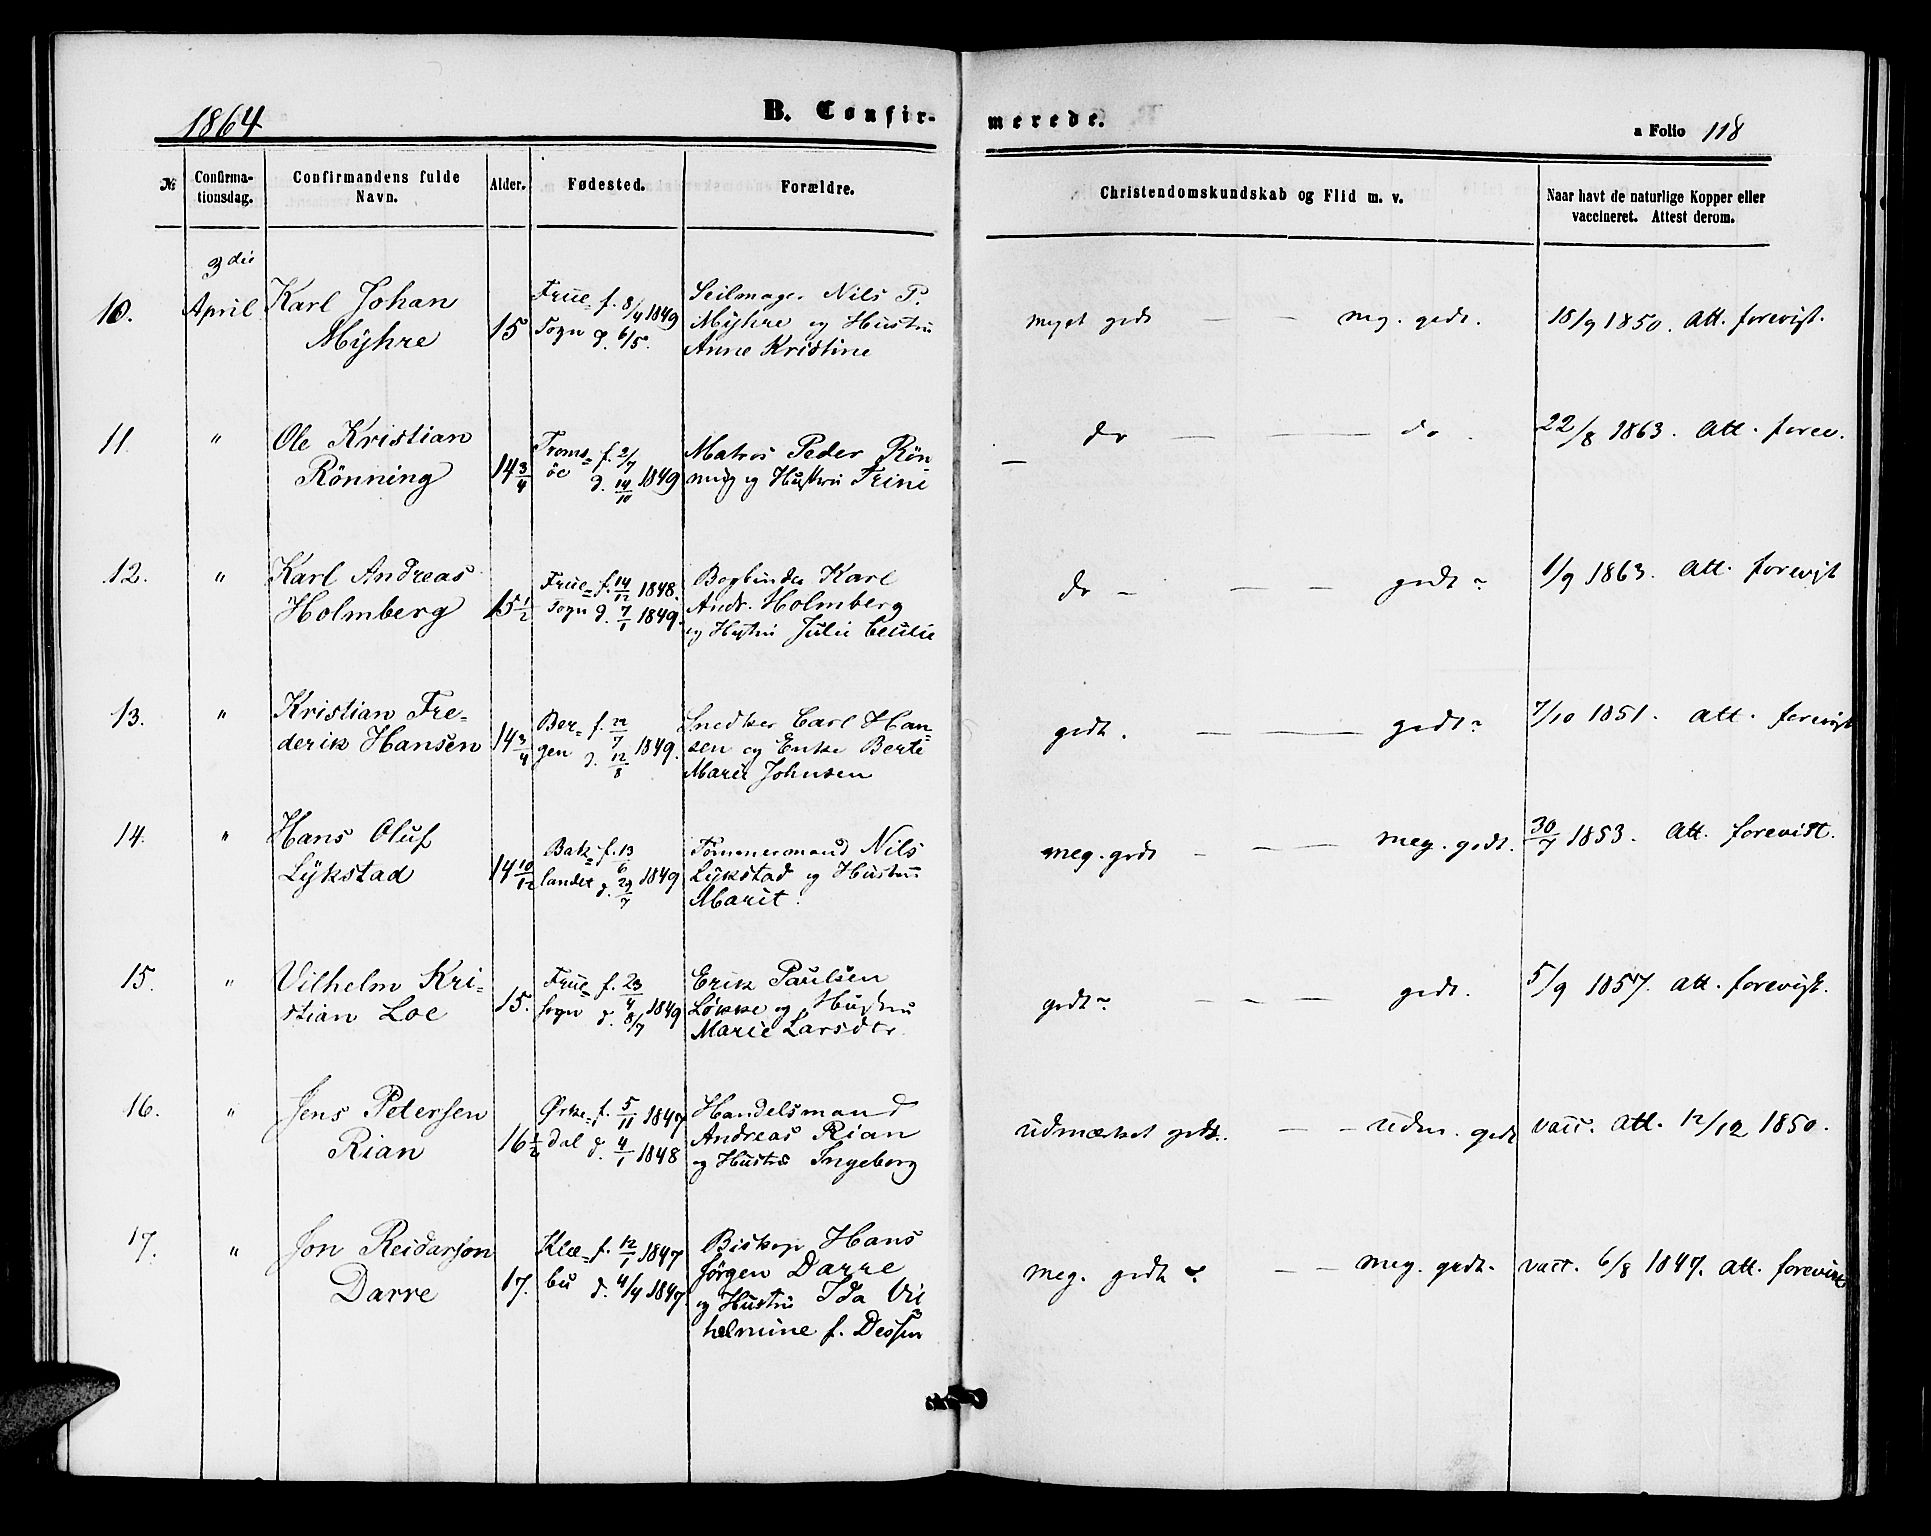 1864
B. Confir-
merede.
a Folio 118
№
Confirma-
tionsdag.
Confirmandens fulde
Navn.
Alder.
Fødested.
Forældre.
Christendomskundskab og Flid m. v.
Naar havt de naturlige Kopper eller
vaccineret. Attest derom.
10.
3die
April
Karl Johan
Myhre
15
Frue= f. 8/4 1849
Sogn d. 6/5.
Seilmager Nils P.
Myhre og Hustru
Anne Kristine
meget godt — — meg. godt.
18/9 1850. Att. forevist.
11.
"
Ole Kristian
Rönning
14 3/4
Troms= f. 2/7
öe d. 14/10 1849
Matros Peder Rön=
ning og Hustru Trine
do — — do.
22/8 1863. Att. forev.
12.
"
Karl Andreas
Holmberg
15 1/2
Frue= f. 14/12 1848.
Sogn d. 7/1 1849.
Bogbinder Karl
Andr. Holmberg
og Hustru Julie Cecilie
do — — — godt
1/9 1863. Att. forevist
13.
"
Kristian Fre-
derik Hansen
14 3/4
Ber= f. 22/7
gen d. 12/8 1849.
Snedker Carl Han=
sen og Enke Berte
Marie Johnsen
godt. — — godt
7/10 1851. Att. forevist
14.
"
Hans Oluf
Lykstad
14 10/12
Bak= f. 13/6
landet d. 29/7 1849
Tømmermand Nils
Lykstad og Hustru
Marit.
meg. godt — — — meg. godt.
30/7 1853. Att. forevist.
15.
"
Vilhelm Kri-
stian Loe
15.
Frue= f. 23/4
sogn d. 8/7 1849
Erik Paulsen
Løkke og Hustru
Marie Larsdtr.
godt — — — godt.
5/9 1857. Att. forevist.
16.
"
Jens Petersen
Rian
16 1/2
Ørke= f. 5/11 1847
dal d. 4/1 1848
Handelsmand
Andreas Rian
og Hustru Ingeborg
udmærket godt. — — udm. godt
vacc. Att. 12/12 1850.
17.
"
Jon Reidarson
Darre
17.
Klæ= f. 12/1 1847
bu d. 4/4 1847
Biskop Hans
Jörgen Darre
og Hustru Ida Vil=
helmine f. Dessen
meg. godt — — meg. godt.
vacc. 6/8 1847. Att. forevist